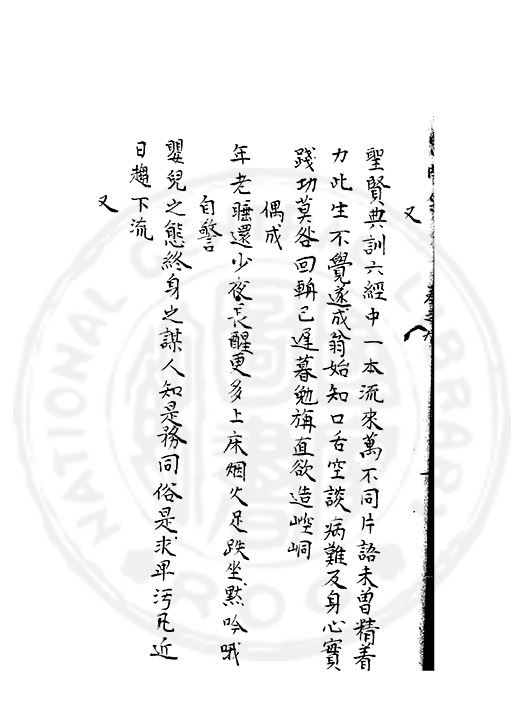 又
聖賢典訓六經中一本流來萬不同片語未曾精着
力此生不覺遂成翁始知口舌空談病難及身心實
踐功莫咎回輈已遲暮勉旃直欲造崆峒
偶成
年老睡還少夜長醒更多上床烟火足趺坐默吟哦
自警
嬰兒之態終身之謀人知是務同俗是求卑汚凡近
日趨下流
又